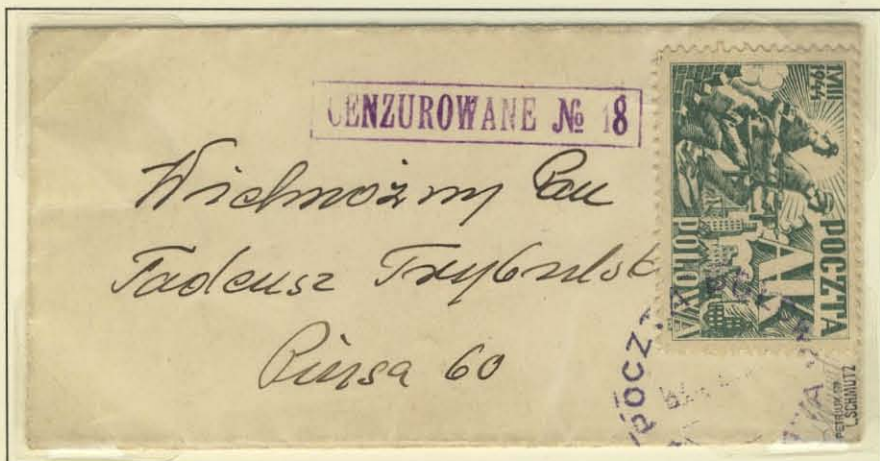 CENZUROWANE № 18
Wielmożny Pan
Tadeusz Trybulsk
Piusa 60
VIII 1944
POCZTA
AK
POLOWA
POCZTA
PETRIUK GR.
L. SCHMUTZ